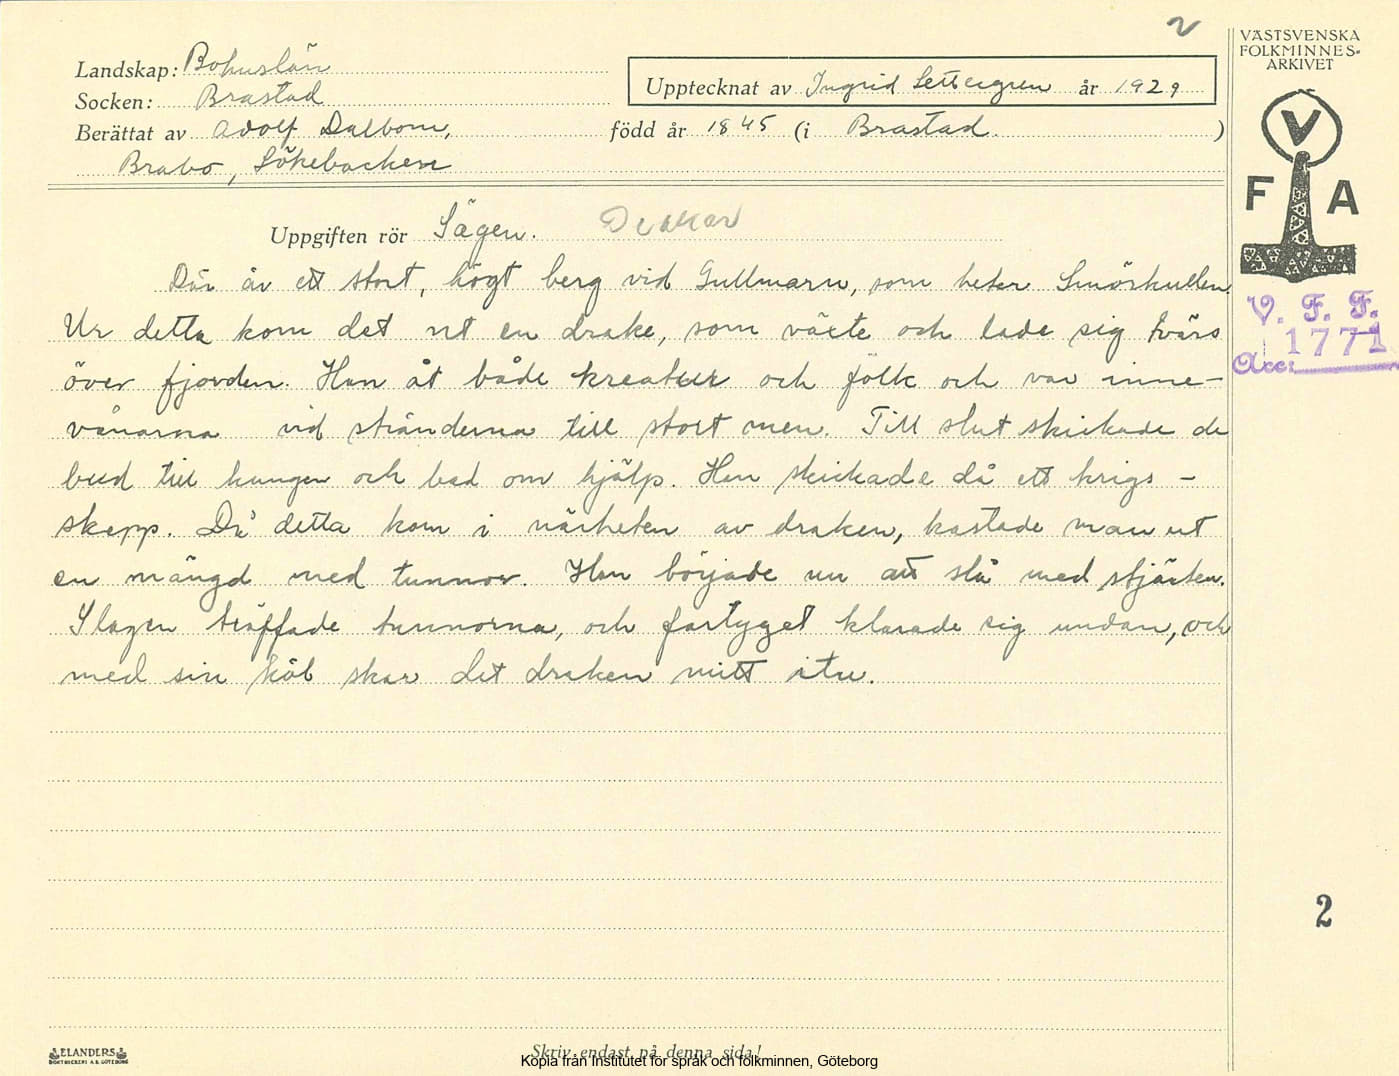 2
VÄSTSVENSKA
FOLKMINNES-
ARKIVET
Landskap: Bohuslän
Socken: Brastad
Upptecknat av Ingrid Settergren år 1929
Berättat av Adolf Dalbom, född år 1845 (i Brastad.)
Brabo, Sökebacken
V
F A
Uppgiften rör Sägen. Drakar
Där är ett stort, högt berg vid Gullmarn, som heter Smörkullen.
Ur detta kom det ut en drake, som växte och lade sig tvärs
över fjorden. Han åt både kreatur och folk och var inne-
vånarna vid stränderna till stort men. Till slut skickade de
bud till kungen och bad om hjälp. Han skickade då ett krigs-
skepp. Då detta kom i närheten av draken, kastade man ut
en mängd med tunnor. Han började nu att slå med stjärten.
Slagen träffade tunnorna, och fartyget klarade sig undan, och
med sin köl skar det draken mitt itu.
V. F. F.
Acc: 1771
2
ELANDERS
BOKTRYCKERI A.B. GÖTEBORG
Skriv endast på denna sida!
Kopia från Institutet för språk och folkminnen, Göteborg